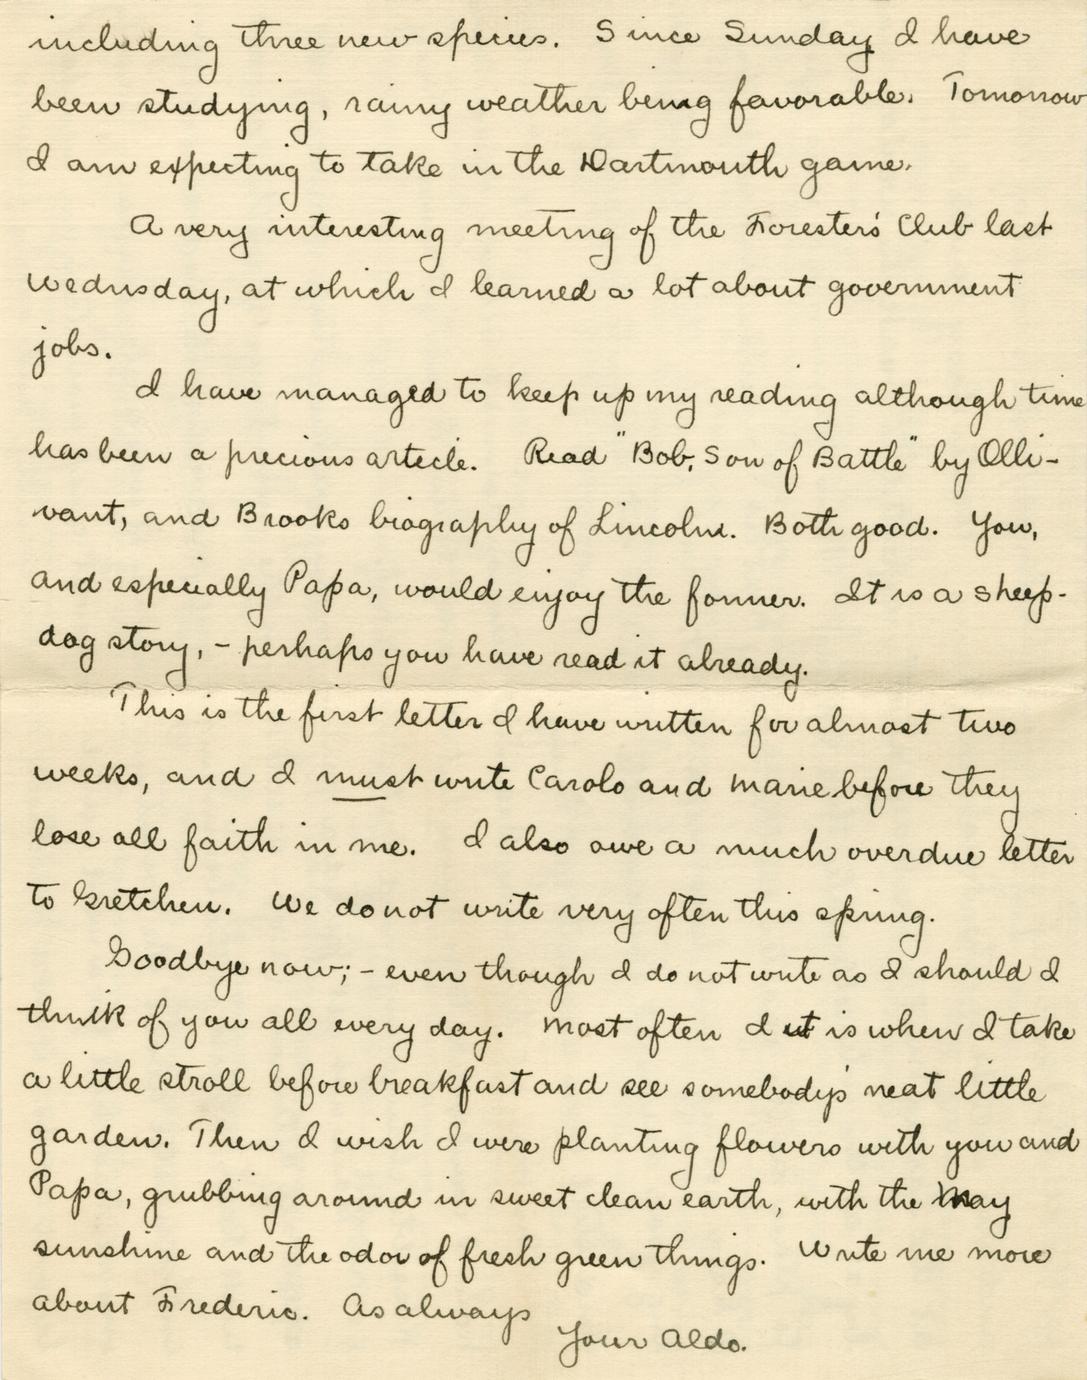 including three new species. Since Sunday I have
been studying, rainy weather being favorable. Tomorrow
I am expecting to take in the Dartmouth game.
A very interesting meeting of the Forester's Club last
Wednesday, at which I learned a lot about government
jobs.
I have managed to keep up my reading although time
has been a precious article. Read "Bob, Son of Battle" by Olli-
vant, and Brooks biography of Lincoln. Both good. You,
and especially Papa, would enjoy the former. It is a sheep-
dog story, - perhaps you have read it already.
This is the first letter I have written for almost two
weeks, and I must write Carolo and Marie before they
lose all faith in me. I also owe a much overdue letter
to Gretchen. We do not write very often this spring.
Goodbye now; - even though I do not write as I should I
think of you all every day. Most often I it is when I take
a little stroll before breakfast and see somebody's neat little
garden. Then I wish I were planting flowers with you and
Papa, grubbing around in sweet clean earth, with the May
sunshine and the odor of fresh green things. Write me more
about Frederic. As always
Your Aldo.